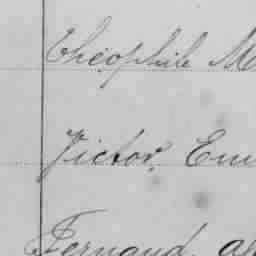 Théophile M
Victor Em
Fernand al